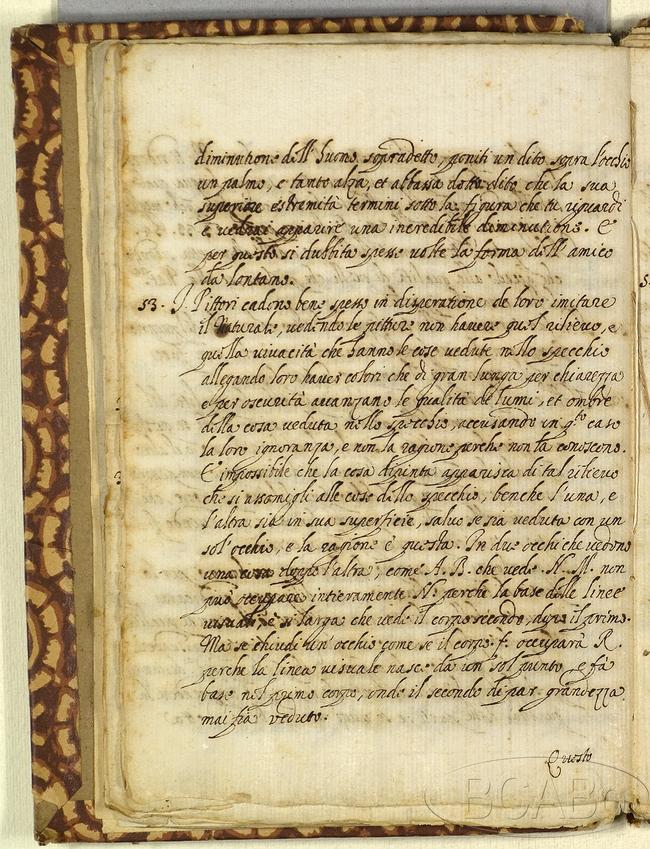 diminutione dell' huomo sopradetto, poniti un dito sopra l'occhio
un palmo, e tanto alza, et abbassa detto dito che la sua
superiore estremità termini sotto la figura che tu riguardi
e vedrai apparire una incredibile diminutione. E
per questo si dubbita spesse volte la forma dell' amico
da lontano.
53. I Pittori cadono bene spesso in disperatione de loro imitare
il Naturale, vedendo le pitture non havere quel rilievo, e
quella vivacità che hanno le cose vedute nello specchio
allegando loro haver colori che di gran lunga per chiarezza
e per oscurità avanzano le qualità de lumi, et ombre
della cosa veduta nello specchio, accusando in q.to caso
la loro ignoranza, e non la ragione perche non la conoscono.
E' impossibile che la cosa dipinta apparisca di tal rilievo
che si assomigli alle cose dello specchio, benche l'una, e
l'altra sia in sua superficie, salvo se sia veduta con un
sol' occhio, e la ragione è questa. In due occhi che vedono
una cosa doppo l'altra, come A. B. che vede N. M. non
può occupare intieramente N. perche la base delle linee
visuali è si larga che vede il corpo secondo, dopo il primo.
Ma se chiudi un' occhio come S. il corpo f. occuparà R.
perche la linea visuale nasce da un' sol punto, e fà
base nel primo corpo, onde il secondo di par grandezza
mai fia veduto.
Questo
BCAB